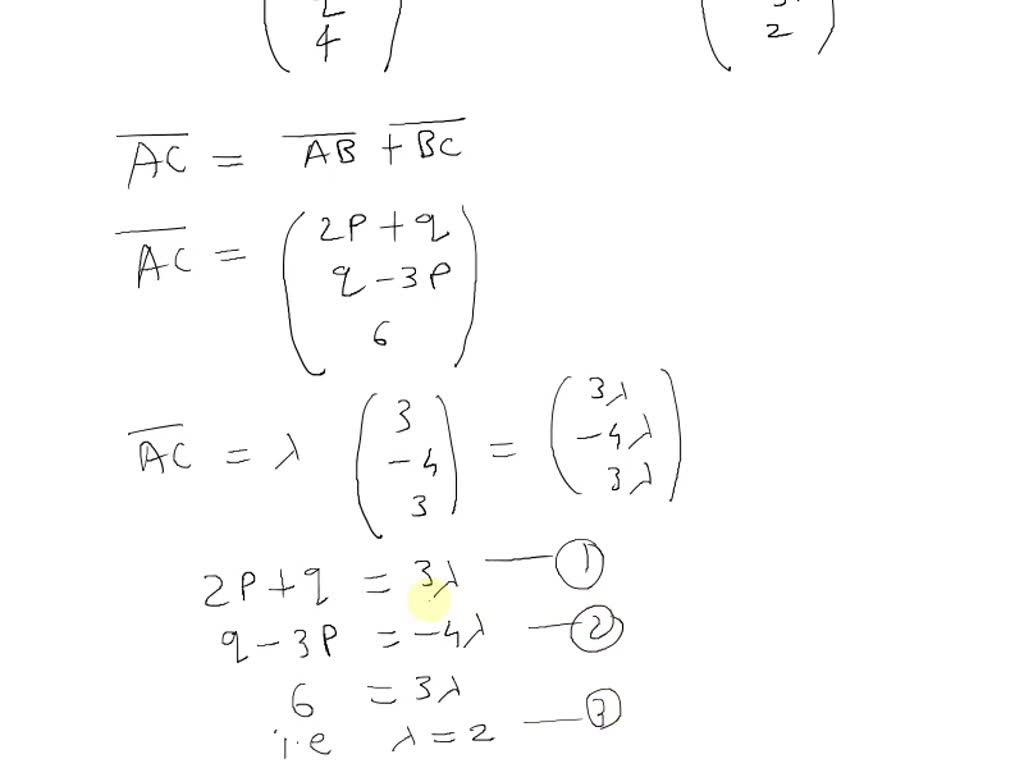 4 2
AC = AB + BC
AC = ( 2P + q
q - 3P
6 )
AC = λ ( 3
-4
3 ) = ( 3λ
-4λ
3λ )
2P + q = 3λ — ①
q - 3P = -4λ — ②
6 = 3λ
i.e λ = 2 — ③